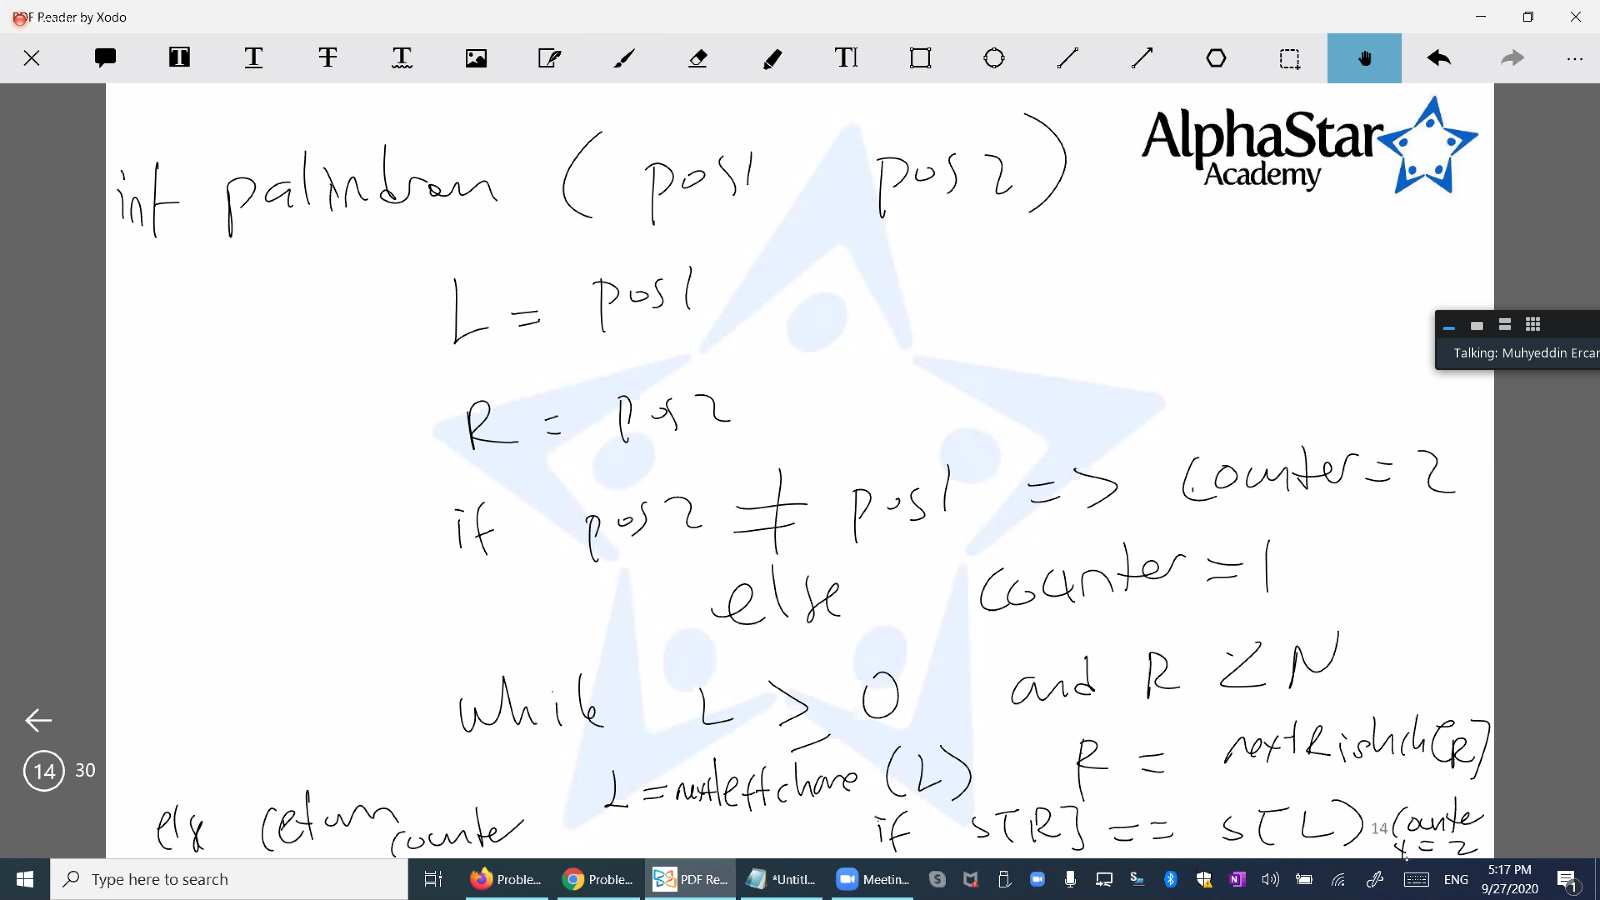 PDF Reader by Xodo
AlphaStar
Academy
int palindrom ( pos1 pos2 )
L = pos1
R = pos2
if pos2 ≠ pos1 => counter = 2
else counter = 1
while L ≥ 0 and R < N
L = nextleftchare (L) R = nextRishch[R]
if s[R] == s[L) counte
+ = 2
else return counter
14
Talking: Muhyeddin Ercan
14 30
Type here to search
Proble...
Proble...
PDF Re...
*Untitl...
Meetin...
ENG
5:17 PM
9/27/2020
1